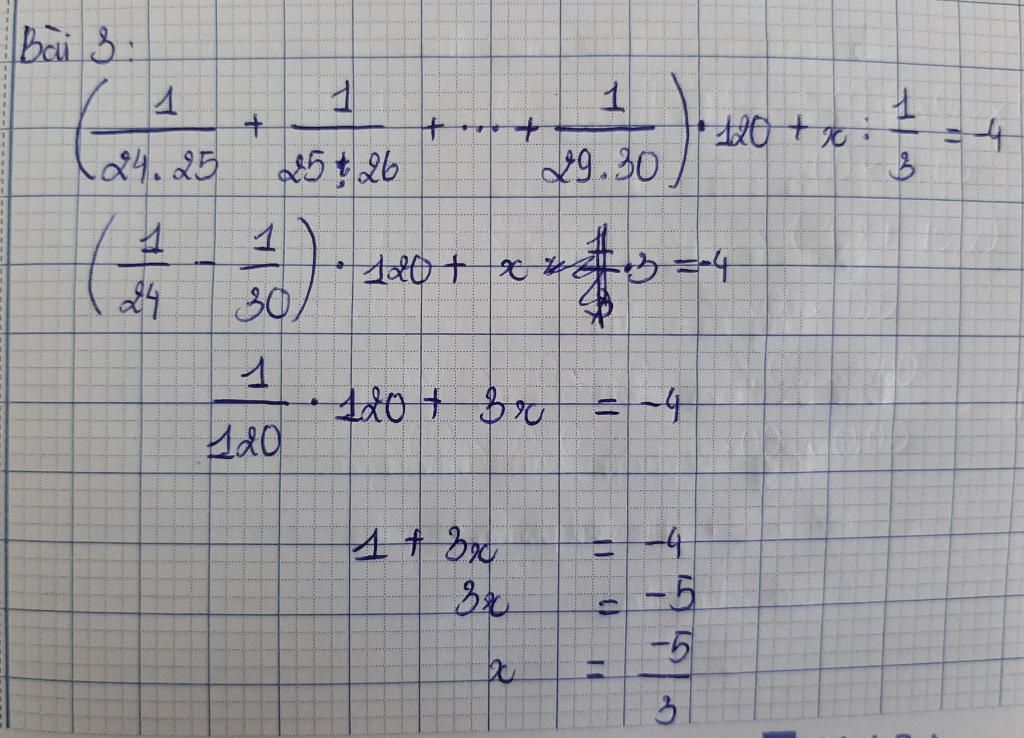 Bài 3:
(1/24.25 + 1/25.26 + ... + 1/29.30) . 120 + x : 1/3 = -4
(1/24 - 1/30) . 120 + x . 3 = -4
1/120 . 120 + 3x = -4
1 + 3x = -4
3x = -5
x = -5/3